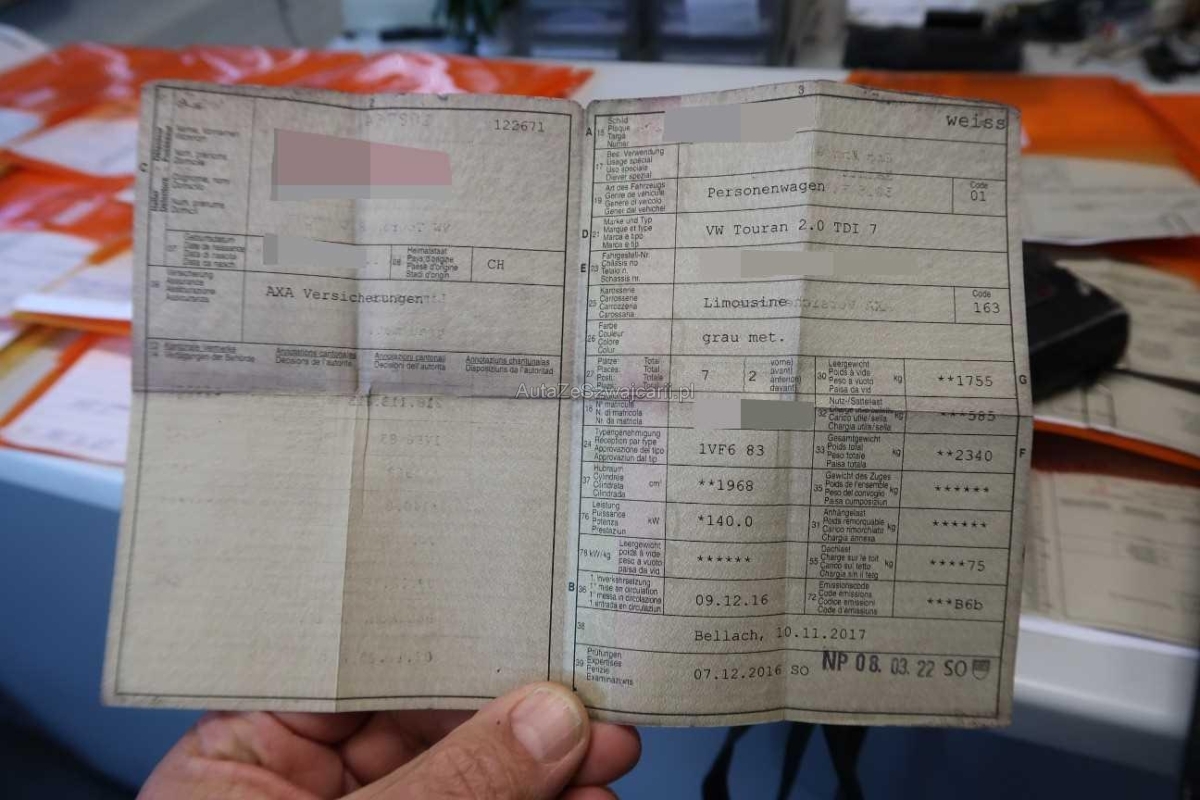 2
122671
C
Name, Vornamen
Wohnort
Nom, prénoms
Domicile
Cognome, nomi
Domicilio
Num, prenums
Domicil
07
Geburtsdatum
Date de naissance
Data di nascita
Data da nasch.
08
Heimatstaat
Pays d'origine
Paese d'origine
Stadi d'origin
CH
09
Versicherung
Assurance
Assicurazione
Assicuranza
AXA Versicherungen
Verfügungen der Behörde
Annotations cantonales
Décisions de l'autorité
Annotazioni cantonali
Decisioni dell'autorità
Annotaziuns chantunalas
Disposiziuns da l'autoritad
3
A
15
Schild
Plaque
Targa
Numer
weiss
17
Bes. Verwendung
Usage spécial
Uso speciale
Diever spezial
19
Art des Fahrzeugs
Genre de véhicule
Genere di veicolo
Gener dal vehichel
Personenwagen
Code
01
D
21
Marke und Typ
Marque et type
Marca e tipo
Marca e tip
VW Touran 2.0 TDI 7
E
23
Fahrgestell-Nr.
Châssis no
Telaio n.
Schassis nr.
25
Karosserie
Carrosserie
Carrozzeria
Carossaria
Limousine
Code
163
26
Farbe
Couleur
Colore
Colur
grau met.
27
Plätze Total
Places Total
Posti Totale
7
2
vorne)
avant)
anteriori)
davant)
30
Leergewicht
Poids à vide
Peso a vuoto
Paisa da vid
kg
**1755
G
18
N° matricule
N. di matricola
Nr. da matricla
32
Nutz-/Sattellast
Charge utile/sellette
Carico utile/sella
Chargia utila/sella
kg
***585
24
Typengenehmigung
Réception par type
Approvazione del tipo
Approvaziun dal tip
1VF6 83
33
Gesamtgewicht
Poids total
Peso totale
Paisa totala
kg
**2340
F
37
Hubraum
Cylindrée
Cilindrata
Cilindrada
cm³
**1968
35
Gewicht des Zuges
Poids de l'ensemble
Peso del convoglio
Paisa cumposiziun
kg
******
76
Leistung
Puissance
Potenza
Prestaziun
kW
*140.0
31
Anhängelast
Poids remorquable
Carico rimorchiato
Chargia annexa
kg
******
78
kW/kg
Leergewicht
poids à vide
peso a vuoto
paisa da vid
******
55
Dachlast
Charge sur le toit
Carico sul tetto
Chargia sin il tetg
kg
****75
B
36
1. Inverkehrsetzung
1re mise en circulation
1a messa in circolazione
1. entrada en circulaziun
09.12.16
72
Emissionscode
Code émissions
Codice emissioni
Code d'emissiuns
***B6b
38
Bellach, 10.11.2017
39
Prüfungen
Expertises
Perizie
Examinaziuns
07.12.2016 SO
NP 08. 03. 22 SO
AutaZeSzwajcarii.pl